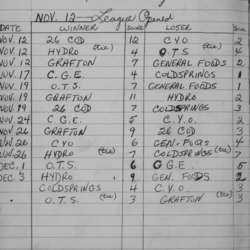 NOV. 12 — League Opened
DATE WINNER SCORE LOSER
NOV. 12 26 COD 12 C.Y.O. 2
NOV. 12 HYDRO (tie) 4 O.T.S. (tie) 4
NOV. 12 GRAFTON 7 GENERAL FOODS 2
NOV. 17 C.G.E. 4 COLDSPRINGS 1
NOV. 19 O.T.S. 7 GENERAL FOODS 1
NOV. 19 GRAFTON 11 HYDRO 2
NOV. 19 26 COD (tie) 7 COLDSPRINGS
NOV. 24 C.G.E. 5 C.Y.O. 2
NOV. 26 GRAFTON 9 26 COD 3
NOV. 26 CYO 6 GEN. FOODS 4
NOV. 26 HYDRO (tie) 7 COLDSPRINGS (tie) 7
DEC. 1 O.T.S. 6 C.G.E. 5
DEC. 3 HYDRO 9 GEN. FOODS 2
COLDSPRINGS 4 C.Y.O. 3
O.T.S. (tie) 3 GRAFTON (tie) 3